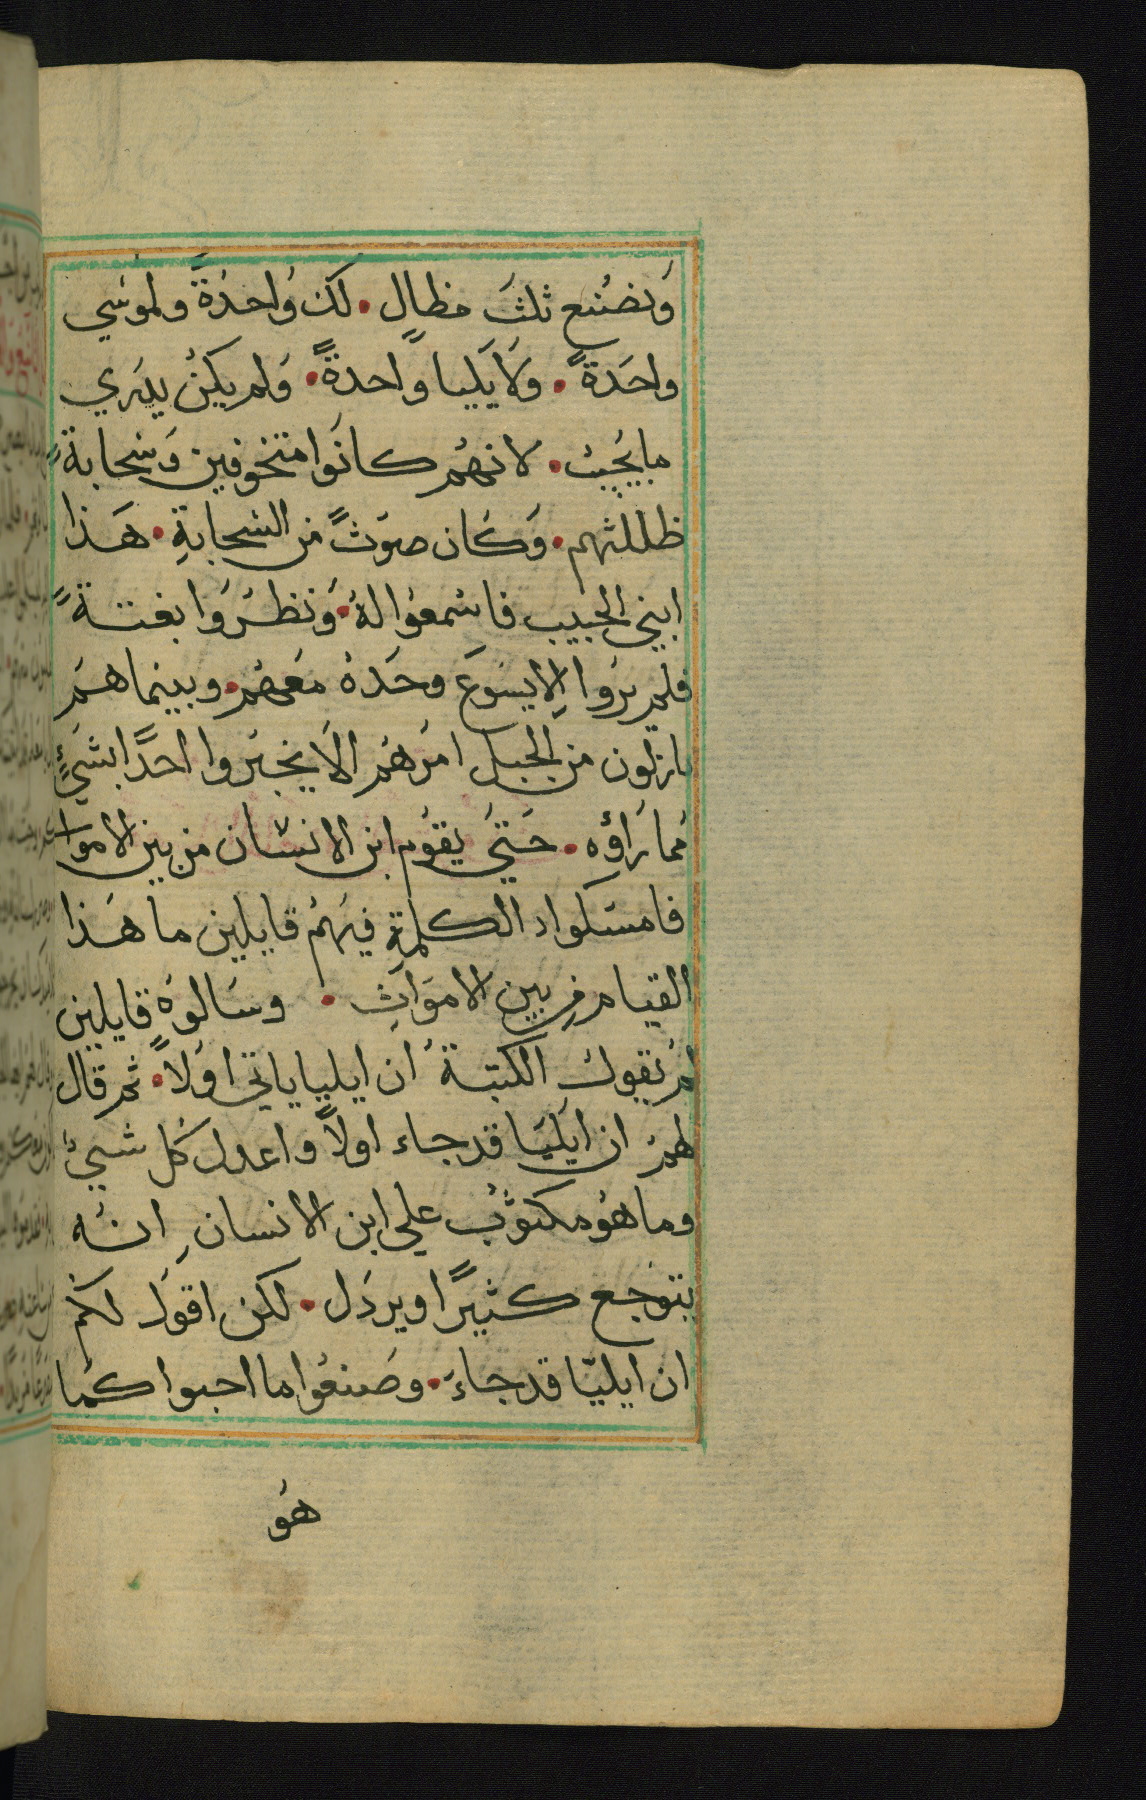 وَنصْنع ثلثَ مظال • لكَ وَاحدَةً ولموُسَي
واحَدةً • وَلاَيَليا وَّاحدةً • وَلم يكنْ يدَري
مايجُيبْ • لانهُم كانَوا متخوفين وَسَحابةً
ظللتهم • وَكان صوَتً من السَحابةِ • هَذا
ابني الحبيب فاسْمعوُا لهُ • وَنظرُوَا بغتةً
فلم يرَوا الِا يسَوعَ وحَدهُ مَعهُم • وبينما هَم
نازلون من الجبل امَرهُم الاَ يخبَروا احَدًا بشَيءٍ
مما رَاؤه • حَتيَ يقوُم ابن الانسْان من بين الاموا
فامسَكواد الكلمة فيهَمُ قايلين ماهَذا
القيام من بين الاموَاتِ • وسَالوهُ قايلين
لمَ يَقول الكتبةُ ان ايليا ياتي اوَلاً • ثم قال
لهمَ ان ايليَا قد جاء اولاً واعدل كُل شيءٍ
وما هوُ مكتوُب علي ابن الانسان انهُ
يتوَجع كثيرًا ويرذَل • لكن اقوَل لكمُ
ان ايليّا قد جاءَ • وصَنعوُا ما احبوا كما
هوُ